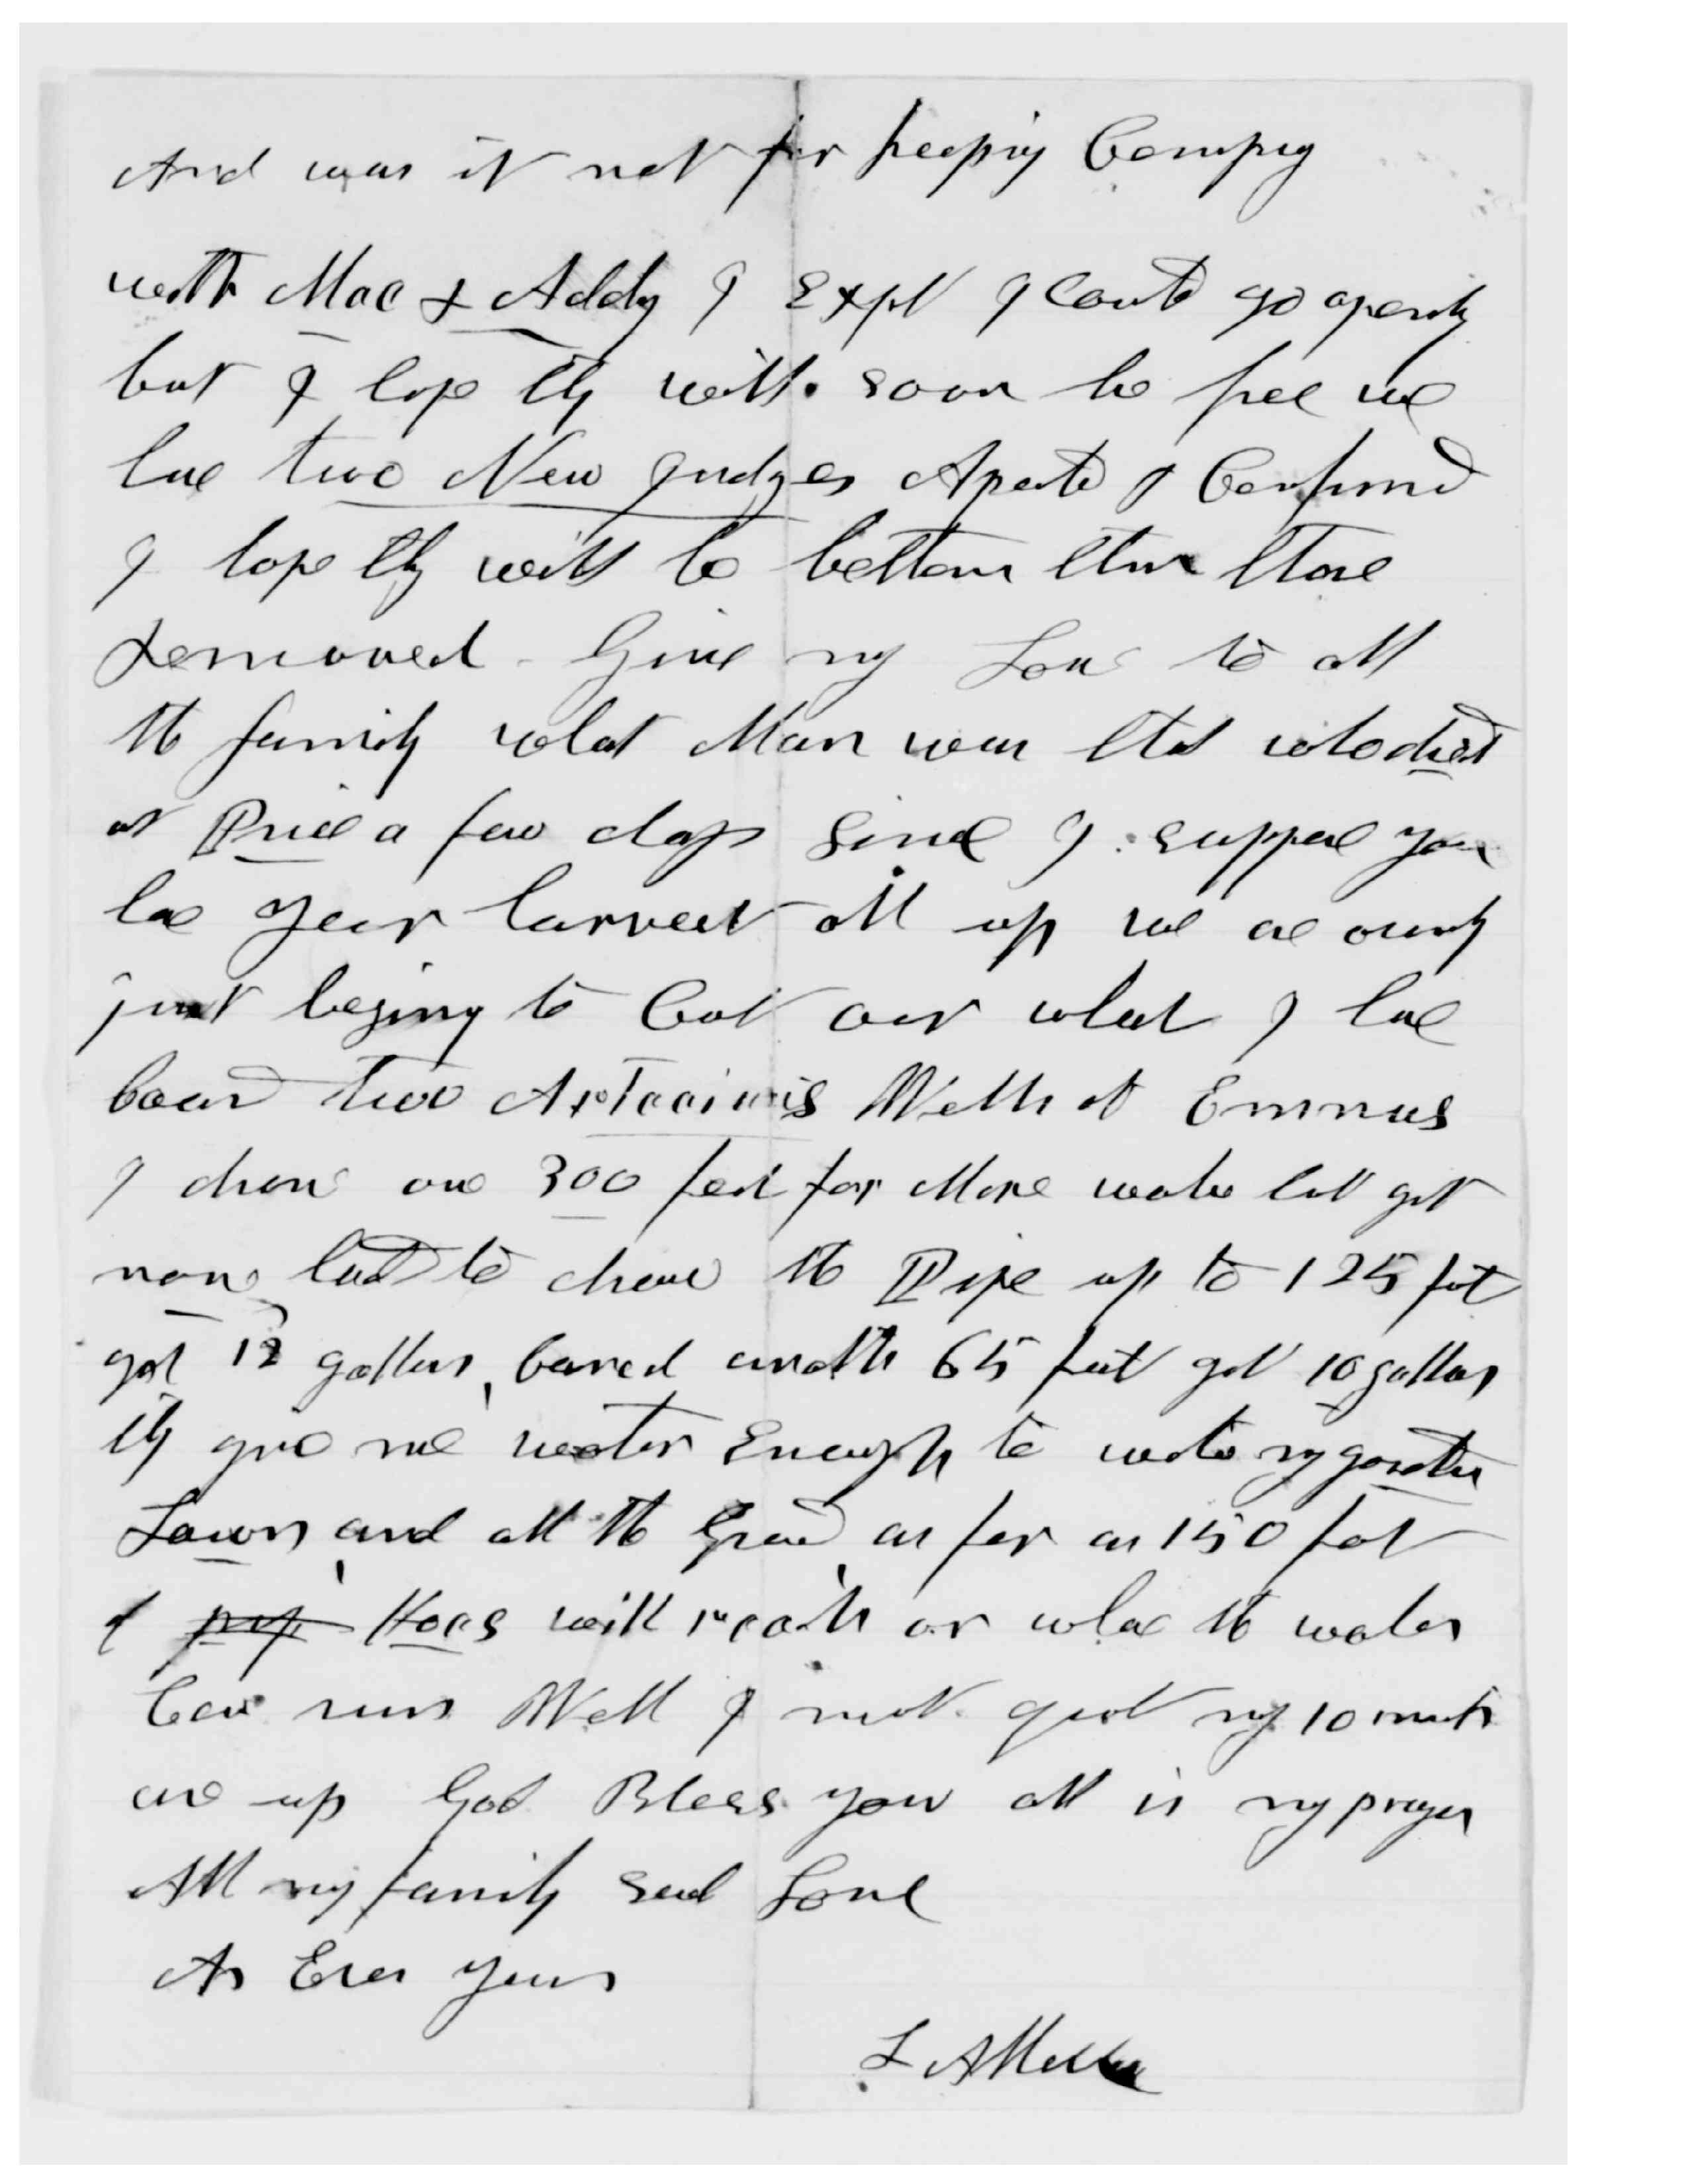 And was it not for keeping Compny
with Mac & Addy I Expt I Could go openly
but I hope thy will soon be free we
have two New Judges Apointed & Confirmed
I hope thy will be better than those
removed. Give my Love to all
the family what Man was that who died
at Price a few days since I suppose you
have your harvest all up we are ounly
just begining to Cut our wheat I have
board two Artasians Wells at
I drove one 300 feet for More water but got
none had to draw the Pipe up to 125 feet
got 12 gallons, bored another 65 feet got 10 gallons
thy give me water Enough to water my garden
Lawn, and all the Ground as far as 150 feet
of Hoas will reach or whare the water
Can run Well I must quit my 10 minuts
are up God Bless you all is my prayer
All my family send Love
As Ever yours